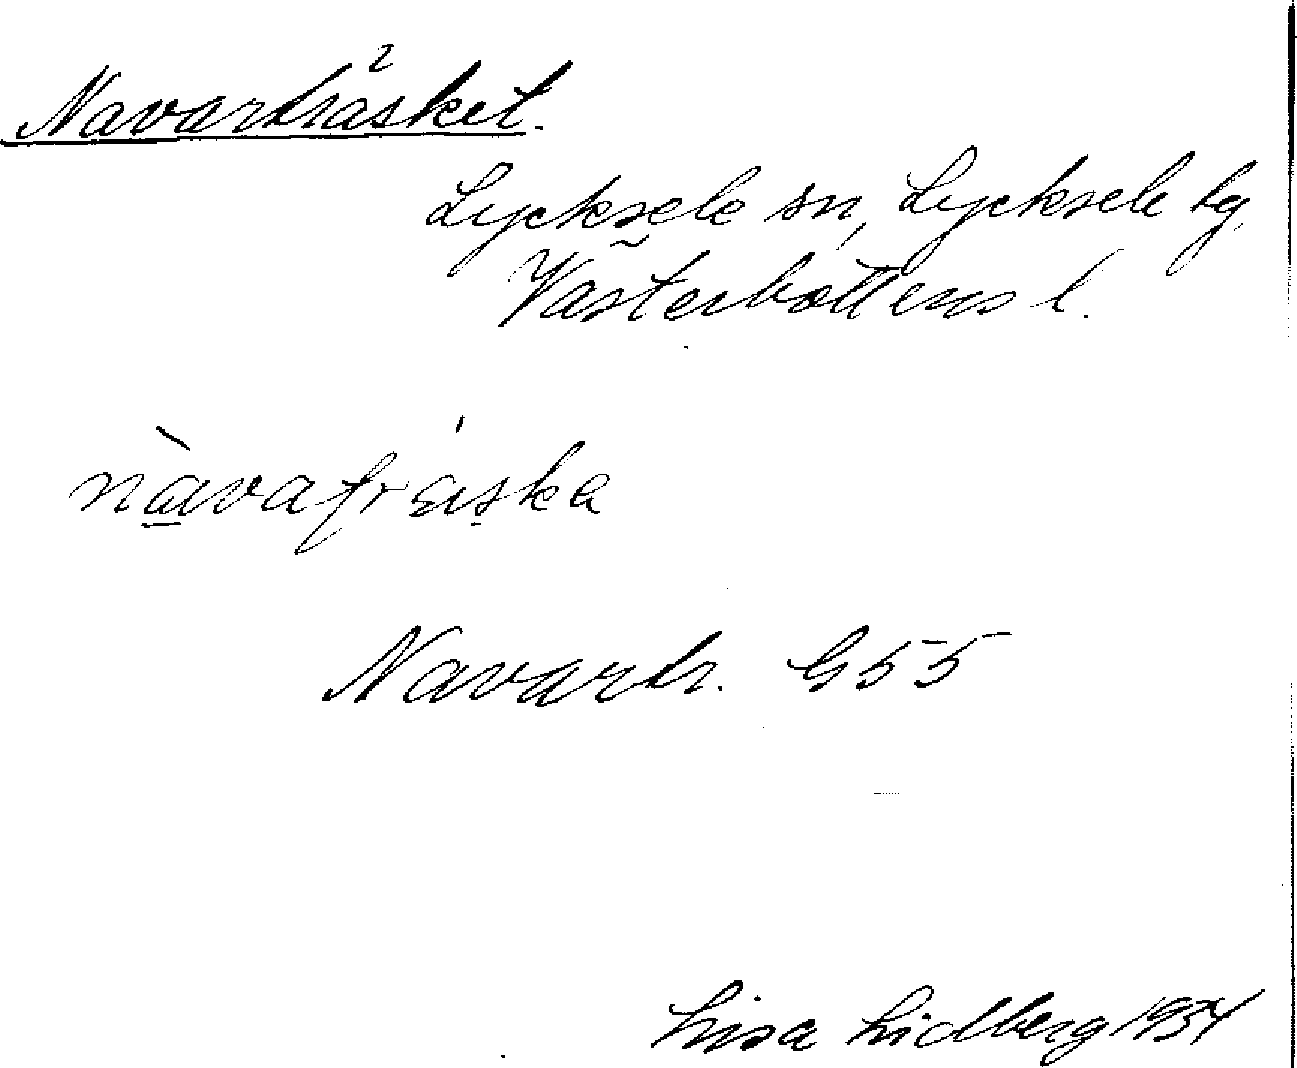 Navarträsket.
Lycksele sn, Lycksele lg,
Västerbottens l.
Navartr. G55
Lisa Lidberg 1934